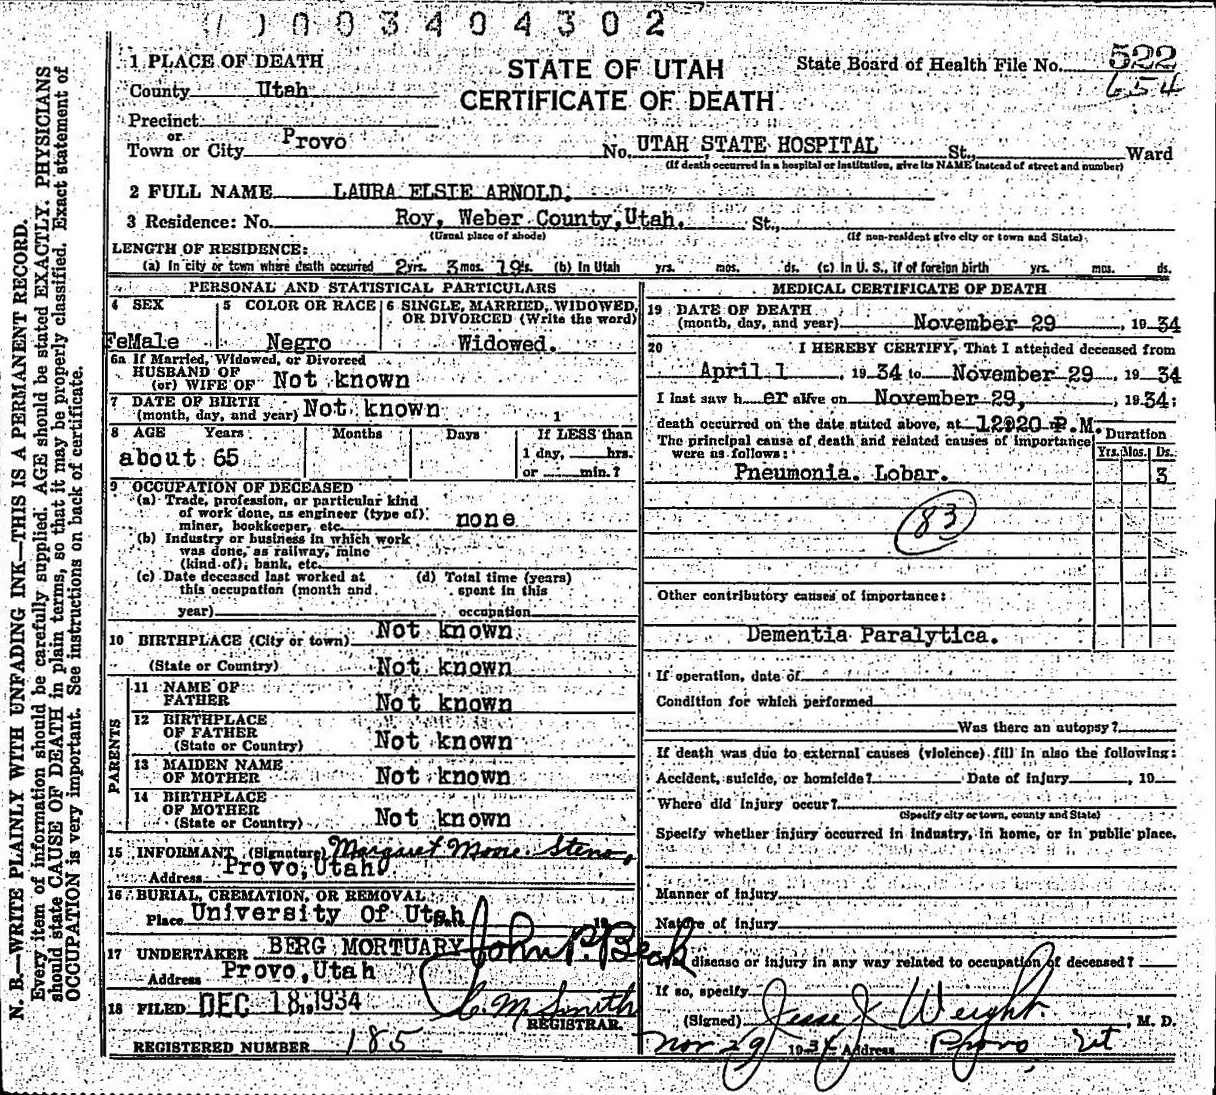 003404302
1 PLACE OF DEATH
STATE OF UTAH
State Board of Health File No. 522
County Utah
CERTIFICATE OF DEATH
654
Precinct
or
Town or City Provo
No. UTAH STATE HOSPITAL St., Ward
(If death occurred in a hospital or institution, give its NAME instead of street and number)
2 FULL NAME LAURA ELSIE ARNOLD.
3 Residence: No. Roy, Weber County, Utah. St.,
(Usual place of abode) (If non-resident give city or town and State)
LENGTH OF RESIDENCE:
(a) In city or town where death occurred 2 yrs. 3 mos. 19 ds. (b) In Utah yrs. mos. ds. (c) In U. S., if of foreign birth yrs. mos. ds.
PERSONAL AND STATISTICAL PARTICULARS
4 SEX
FeMale
5 COLOR OR RACE
Negro
6 SINGLE, MARRIED, WIDOWED,
OR DIVORCED (Write the word)
Widowed.
6a If Married, Widowed, or Divorced
HUSBAND OF
(or) WIFE OF Not known
7 DATE OF BIRTH
(month, day, and year) Not known 1
8 AGE Years Months Days If LESS than
about 65
1 day, hrs.
or min.?
9 OCCUPATION OF DECEASED
(a) Trade, profession, or particular kind
of work done, as engineer (type of)
miner, bookkeeper, etc. none
(b) Industry or business in which work
was done, as railway, mine
(kind of), bank, etc.
(c) Date deceased last worked at
this occupation (month and
year)
(d) Total time (years)
spent in this
occupation
10 BIRTHPLACE (City or town) Not known
(State or Country) Not known
PARENTS
11 NAME OF
FATHER Not known
12 BIRTHPLACE
OF FATHER
(State or Country) Not known
13 MAIDEN NAME
OF MOTHER Not known
14 BIRTHPLACE
OF MOTHER
(State or Country) Not known
15 INFORMANT (Signature) Margaret Moore Steno,
Address Provo, Utah
16 BURIAL, CREMATION, OR REMOVAL
Place University Of Utah
17 UNDERTAKER BERG MORTUARY John P. Beck
Address Provo, Utah
18 FILED DEC 18, 1934 C. M. Smith
REGISTRAR.
REGISTERED NUMBER 185
MEDICAL CERTIFICATE OF DEATH
19 DATE OF DEATH
(month, day, and year) November 29, 1934
20 I HEREBY CERTIFY, That I attended deceased from
April 1, 1934 to November 29, 1934
I last saw her alive on November 29, 1934;
death occurred on the date stated above, at 12:20 P.M.
The principal cause of death and related causes of importance
were as follows:
Duration
Yrs. Mos. Ds.
Pneumonia. Lobar. 3
83
Other contributory causes of importance:
Dementia Paralytica.
If operation, date of
Condition for which performed
Was there an autopsy?
If death was due to external causes (violence) fill in also the following:
Accident, suicide, or homicide? Date of injury, 19
Where did injury occur?
(Specify city or town, county and State)
Specify whether injury occurred in industry, in home, or in public place.
Manner of injury
Nature of injury
disease or injury in any way related to occupation of deceased?
If so, specify
(Signed) Jesse J Weight, M. D.
Nov 29 1934 Address Provo Ut
N. B.—WRITE PLAINLY WITH UNFADING INK—THIS IS A PERMANENT RECORD.
Every item of information should be carefully supplied. AGE should be stated EXACTLY. PHYSICIANS
should state CAUSE OF DEATH in plain terms, so that it may be properly classified. Exact statement of
OCCUPATION is very important. See instructions on back of certificate.